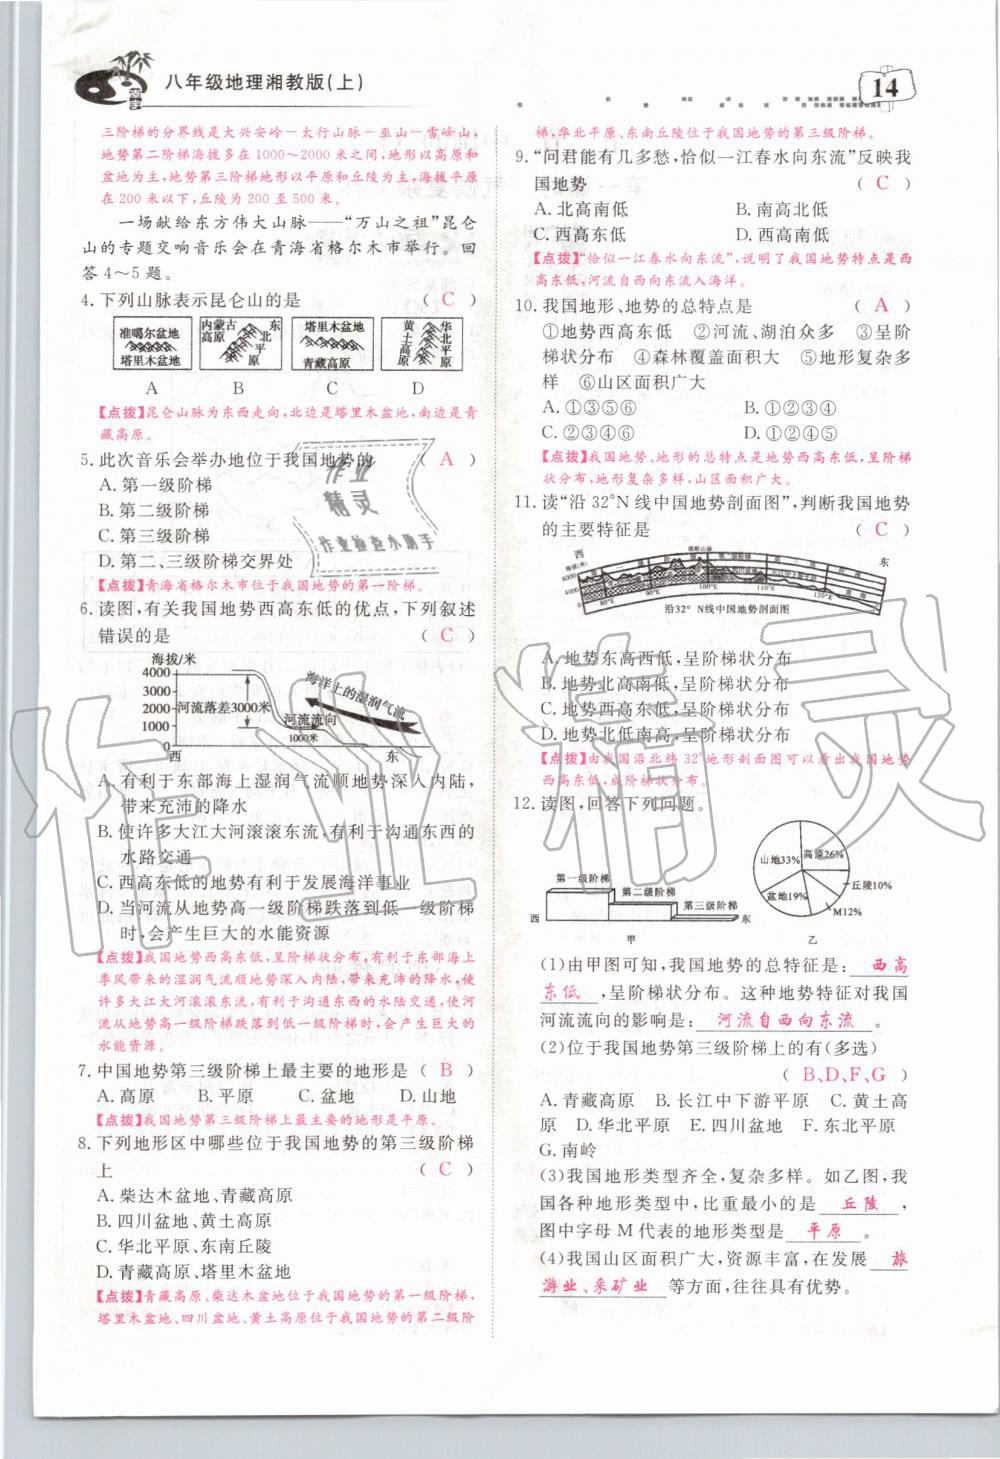 八年级地理湘教版(上)
14
三阶梯的分界线是大兴安岭—太行山脉—巫山—雪峰山,
地势第二阶梯海拔多在1000～2000米之间,地形以高原和
盆地为主,地势第三阶梯地形以平原和丘陵为主,海拔平原
在200米以下,丘陵为200至500米。
一场献给东方伟大山脉——“万山之祖”昆仑
山的专题交响音乐会在青海省格尔木市举行。回
答4～5题。
4.下列山脉表示昆仑山的是 ( C )
准噶尔盆地
塔里木盆地
内蒙古高原
东北平原
塔里木盆地
青藏高原
黄土高原
华北平原
A B C D
【点拨】昆仑山脉为东西走向,北边是塔里木盆地,南边是青
藏高原。
5.此次音乐会举办地位于我国地势的 ( A )
A.第一级阶梯
B.第二级阶梯
C.第三级阶梯
D.第二、三级阶梯交界处
【点拨】青海省格尔木市位于我国地势的第一阶梯。
作业
精灵
作业检查小助手
6.读图,有关我国地势西高东低的优点,下列叙述
错误的是 ( C )
海拔/米
4000
3000
2000
1000
0
河流落差3000米
河流流向
1000米
海洋上的湿润气流
西 东
A.有利于东部海上湿润气流顺地势深入内陆,
带来充沛的降水
B.使许多大江大河滚滚东流,有利于沟通东西的
水路交通
C.西高东低的地势有利于发展海洋事业
D.当河流从地势高一级阶梯跌落到低一级阶梯
时,会产生巨大的水能资源
【点拨】我国地势西高东低,呈阶梯状分布,有利于东部海上
季风带来的湿润气流顺地势深入内陆,带来充沛的降水,使
许多大江大河滚滚东流,有利于沟通东西的水陆交通,使河
流从地势高一级阶梯跌落到低一级阶梯时,会产生巨大的
水能资源。
7.中国地势第三级阶梯上最主要的地形是 ( B )
A.高原 B.平原 C.盆地 D.山地
【点拨】我国地势第三级阶梯上最主要的地形是平原。
8.下列地形区中哪些位于我国地势的第三级阶梯
上 ( C )
A.柴达木盆地、青藏高原
B.四川盆地、黄土高原
C.华北平原、东南丘陵
D.青藏高原、塔里木盆地
【点拨】青藏高原、柴达木盆地位于我国地势的第一级阶梯,
塔里木盆地、四川盆地、黄土高原位于我国地势的第二级阶
梯,华北平原、东南丘陵位于我国地势的第三级阶梯。
9.“问君能有几多愁,恰似一江春水向东流”反映我
国地势 ( C )
A.北高南低 B.南高北低
C.西高东低 D.西高南低
【点拨】“恰似一江春水向东流”,说明了我国地势特点是西
高东低,河流自西向东流入海洋。
10.我国地形、地势的总特点是 ( A )
①地势西高东低 ②河流、湖泊众多 ③呈阶
梯状分布 ④森林覆盖面积大 ⑤地形复杂多
样 ⑥山区面积广大
A.①③⑤⑥ B.①②③④
C.②③④⑥ D.①②④⑤
【点拨】我国地势、地形的总特点是西高东低、呈阶梯状分
布,地形复杂多样,山区面积广大。
11.读“沿32°N线中国地势剖面图”,判断我国地势
的主要特征是 ( C )
西
海拔(米)
东
80°E 90°E 100°E 110°E 120°E
沿32°N线中国地势剖面图
A.地势东高西低,呈阶梯状分布
B.地势北高南低,呈阶梯状分布
C.地势西高东低,呈阶梯状分布
D.地势北低南高,呈阶梯状分布
【点拨】由我国沿北纬32°地形剖面图可以看出我国地势
西高东低,成阶梯状分布。
12.读图,回答下列问题。
第一级阶梯
第二级阶梯
第三级阶梯
西 东
甲
山地33%
高原26%
丘陵10%
盆地19%
M12%
乙
(1)由甲图可知,我国地势的总特征是: 西高
东低 ,呈阶梯状分布。这种地势特征对我国
河流流向的影响是: 河流自西向东流 。
(2)位于我国地势第三级阶梯上的有(多选)
( B、D、F、G )
A.青藏高原 B.长江中下游平原 C.黄土高
原 D.华北平原 E.四川盆地 F.东北平原
G.南岭
(3)我国地形类型齐全,复杂多样。如乙图,我
国各种地形类型中,比重最小的是 丘陵 ,
图中字母M代表的地形类型是 平原 。
(4)我国山区面积广大,资源丰富,在发展 旅
游业、采矿业 等方面,往往具有优势。
作业精灵